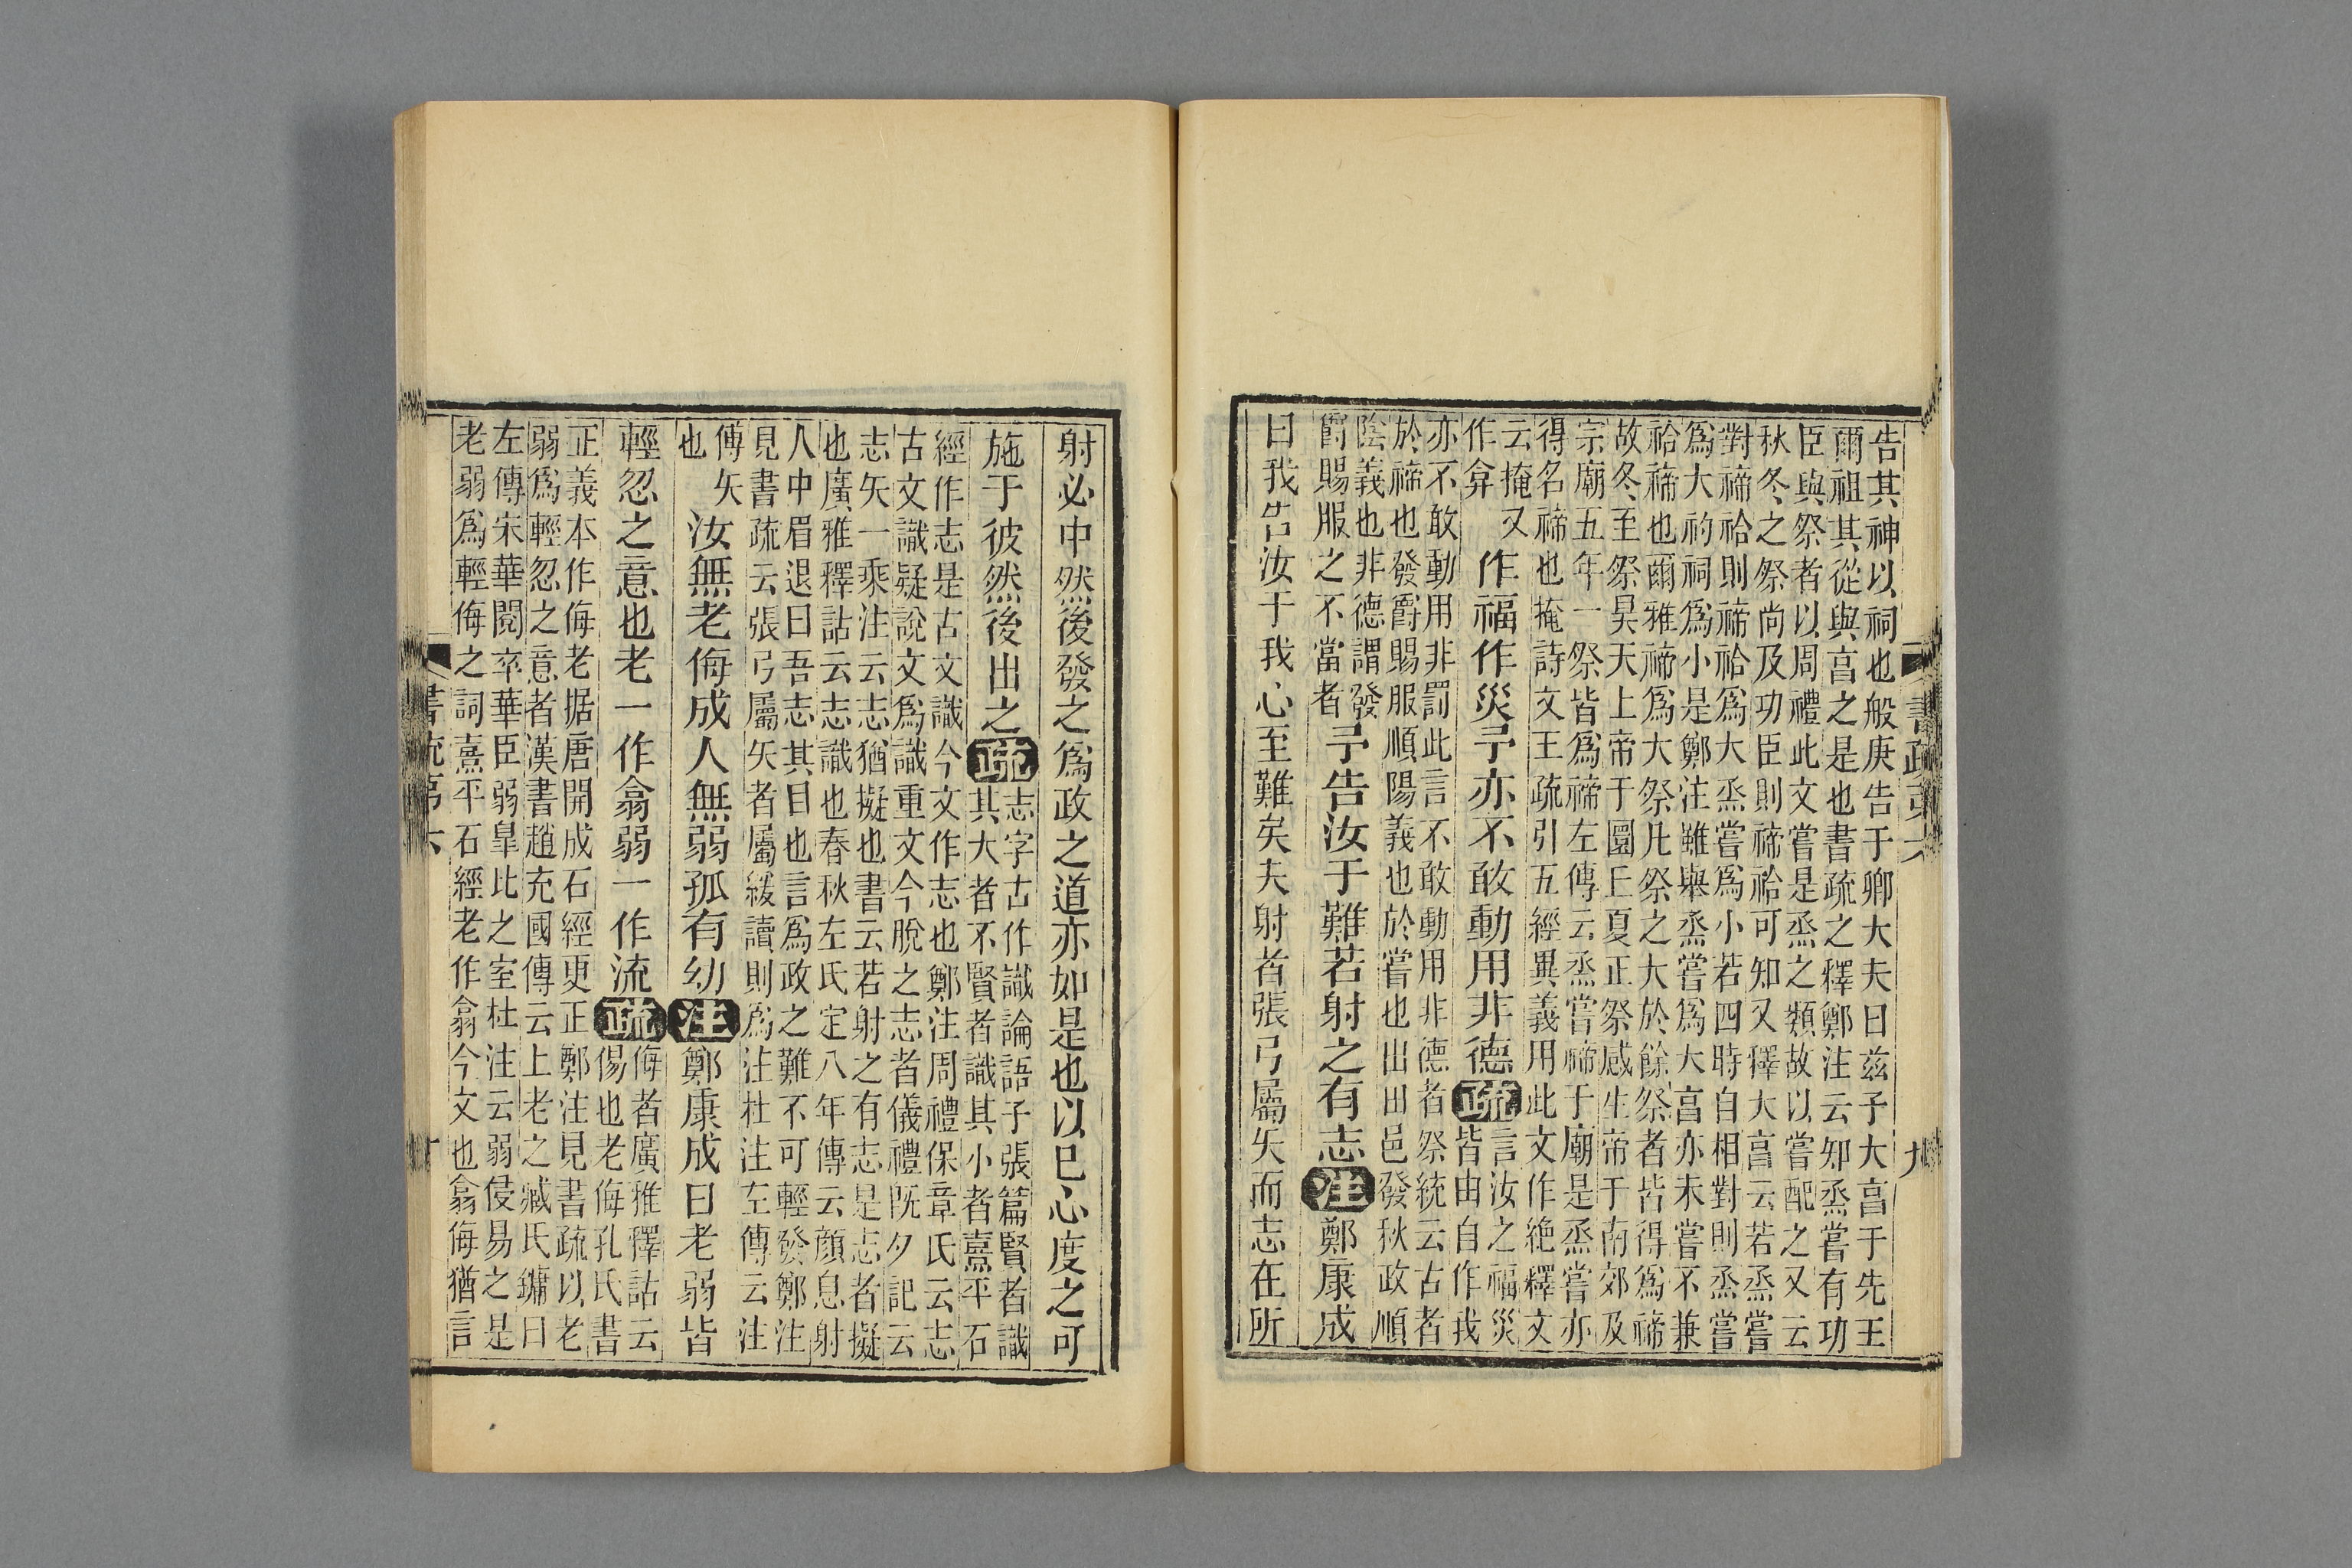 書疏第六 九
告其神以祠也般庚告于卿大夫曰兹予大亯于先王
爾祖其從與亯之是也書疏之釋鄭注云知烝嘗有功
臣與祭者以周禮此文嘗是烝之類故以嘗配之又云
秋冬之祭尚及功臣則禘祫可知又釋大亯云若烝嘗
對禘祫則禘祫爲大烝嘗爲小若四時自相對則烝嘗
爲大礿祠爲小是鄭注雖舉烝嘗爲大亯亦未嘗不兼
祫禘也爾雅禘爲大祭凡祭之大於餘祭者皆得爲禘
故冬至祭昊天上帝于圜丘夏正祭感生帝于南郊及
宗廟五年一祭皆爲禘左傳云烝嘗禘于廟是烝嘗亦
得名禘也掩詩文王疏引五經異義用此文作絶釋文
云掩又
作弇
作福作災予亦不敢動用非德疏
言汝之福災
皆由自作我
亦不敢動用非罰此言不敢動用非德者祭統云古者
於禘也發爵賜服順陽義也於嘗也出田邑發秋政順
陰義也非德謂發
爵賜服之不當者
予告汝于難若射之有志注鄭康成
曰我告汝于我心至難矣夫射者張弓屬矢而志在所
射必中然後發之爲政之道亦如是也以已心度之可
施于彼然後出之疏
志字古作識論語子張篇賢者識
其大者不賢者識其小者熹平石
經作志是古文識今文作志也鄭注周禮保章氏云志
古文識疑說文爲識重文今脫之志者儀禮既夕記云
志矢一乘注云志猶擬也書云若射之有志是志者擬
也廣雅釋詁云志識也春秋左氏定八年傳云顏息射
人中眉退曰吾志其目也言爲政之難不可輕發鄭注
見書疏云張弓屬矢者屬緩讀則爲注杜注左傳云注
傅矢
也
汝無老侮成人無弱孤有幼注鄭康成曰老弱皆
輕忽之意也老一作翕弱一作流疏
侮者廣雅釋詁云
傷也老侮孔氏書
正義本作侮老据唐開成石經更正鄭注見書疏以老
弱爲輕忽之意者漢書趙充國傳云上老之臧氏鏞曰
左傳宋華閱卒華臣弱皐比之室杜注云弱侵易之是
老弱爲輕侮之詞熹平石經老作翕今文也翕侮猶言
書疏第六